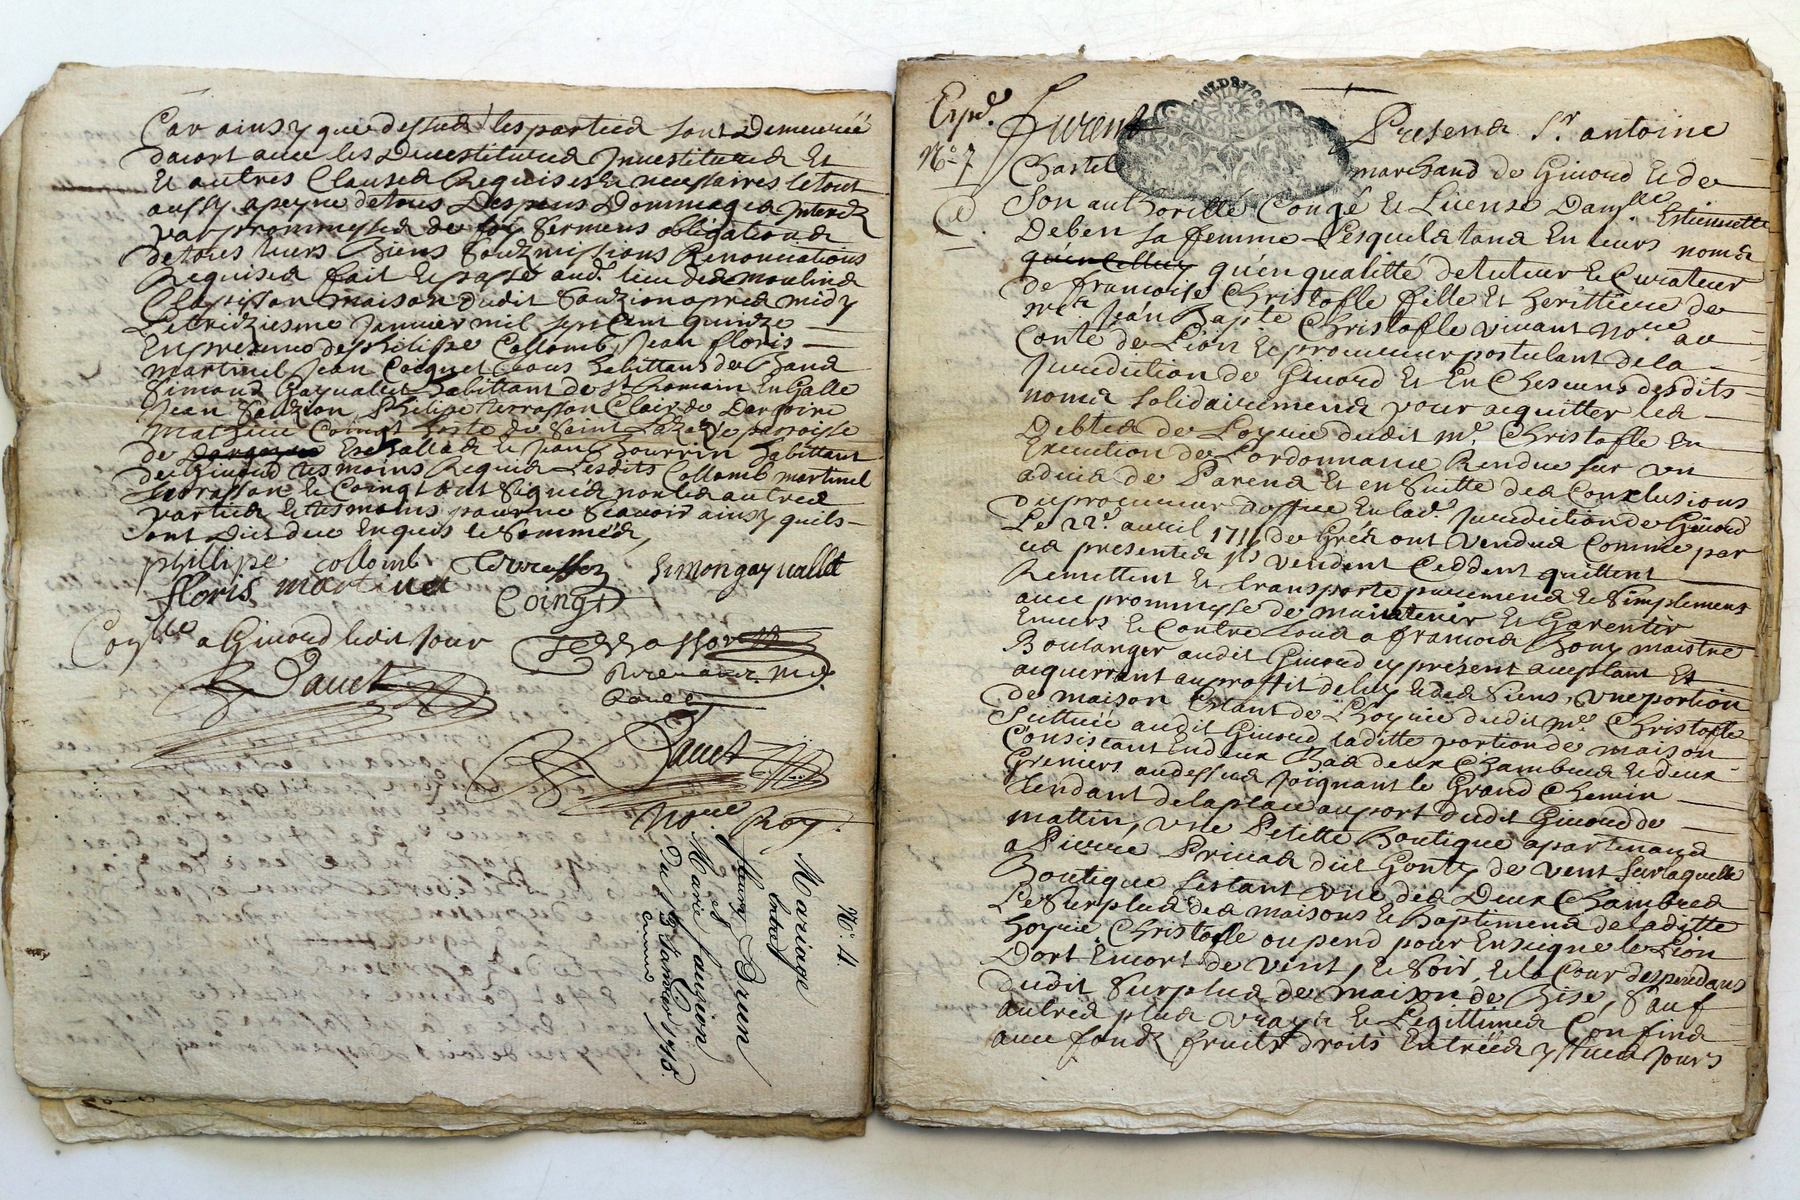 Car ainsy que dessus les parties sont demeurée
dacort avec les Devestitures Investitures Et
Et autres Clauses Requises & necessaires le tout
aussy a peyne de tous Despens Dommages Interéz
par prommesse de foy serment obligation de
de tous leurs Biens soubzmissions Renonciations
Requises fait & passé aud. lieu des moulins
maison dudit Souzion apres midy
Le treiziesme Janvier mil sept Cent quinze
En presence de philippe Collomb, Jean floris
martinel Jean Coignet tous habittans de
Simond Gayvallet habittant de St. Romain En Galle
Jean Souzion, Philipe terrasson Clair de Dargoire
Mathieu Coingt de Saint Lazare parroisse
de Eschallas & Jean Bourrin habittant
de Givord tesmoins Requis Lesdits Collomb martinel
terrasson & Coingt ont Signés non les autres
parties & tesmoins pour ne scavoir ainsy quils
sont Dit de ce Enquis & Sommés,
phillipe collomb Terrasson Simon gay vallet
floris martinel Coingt
a Givord ledit Jour
Dauet
Dauet
Noⁿᵉ Roy.
N° 4.
Mariage
Entre
fleury Brun
Et
Marie fausion
Du 13 Janvier 1715.
Expd.
N° 7
Furent Presens Sr. antoine
Chastel marchand de Givord & de
Son authoritté Congé & License Damlle Estiennette
Deben sa femme Lesquels tans En leurs noms
qu'en qualitté de tuteur & Curateur
de francoise Christofle fille Et herittiere de
me. Jean Bapte. Christofle vivant nore. au
Conté de Lion & procureur postulant de la
Jurediction de Givord Et En Chescuns desdits
noms solidairemens pour acquitter les
Debtes de Loyrie dudit me. Christofle En
Execution de Lordonnance Rendue sur un
advis de Parens Et en Suitte des Conclusions
du procureur doffice En lad. Jurediction de Givord
Le 22e. avril 1711 de Grés ont Vendus Comme par
ces presentes Ils vendent Ceddent quittent
Remettent Et transporte puremens & simplemens
avec prommesse de maintenir Et Garentir
Envers & Contre tous a francois Bony maistre
Boulanger audit Givord cy present aceptant Et
acquerrant au proffit de luy & des siens, une portion
de maison Estant de Lhoyrie dudit me. Christofle
Scittuée audit Givord laditte portion de maison
Consistant En deux Bas deux Chambres & deux
Greniers au dessus Joignant le Grand Chemin
tendant de la place au port dudit Givord de
mattin, une Petitte Boutique apartenans
a Pierre Privas dit Gonty de vent sur laquelle
Boutique sestant une des Deux Chambres
Le surplus des maisons & Baptimens de laditte
hoyrie Christofle ou pend pour Enseigne le Lion
Dort Encort de vent, & Soir, & la Cour despendans
dudit Surplus de maison de Bise, Sauf
autres plus vrays & Legittimes Confins
avec fondz fruits droits Entrées yssues Jours